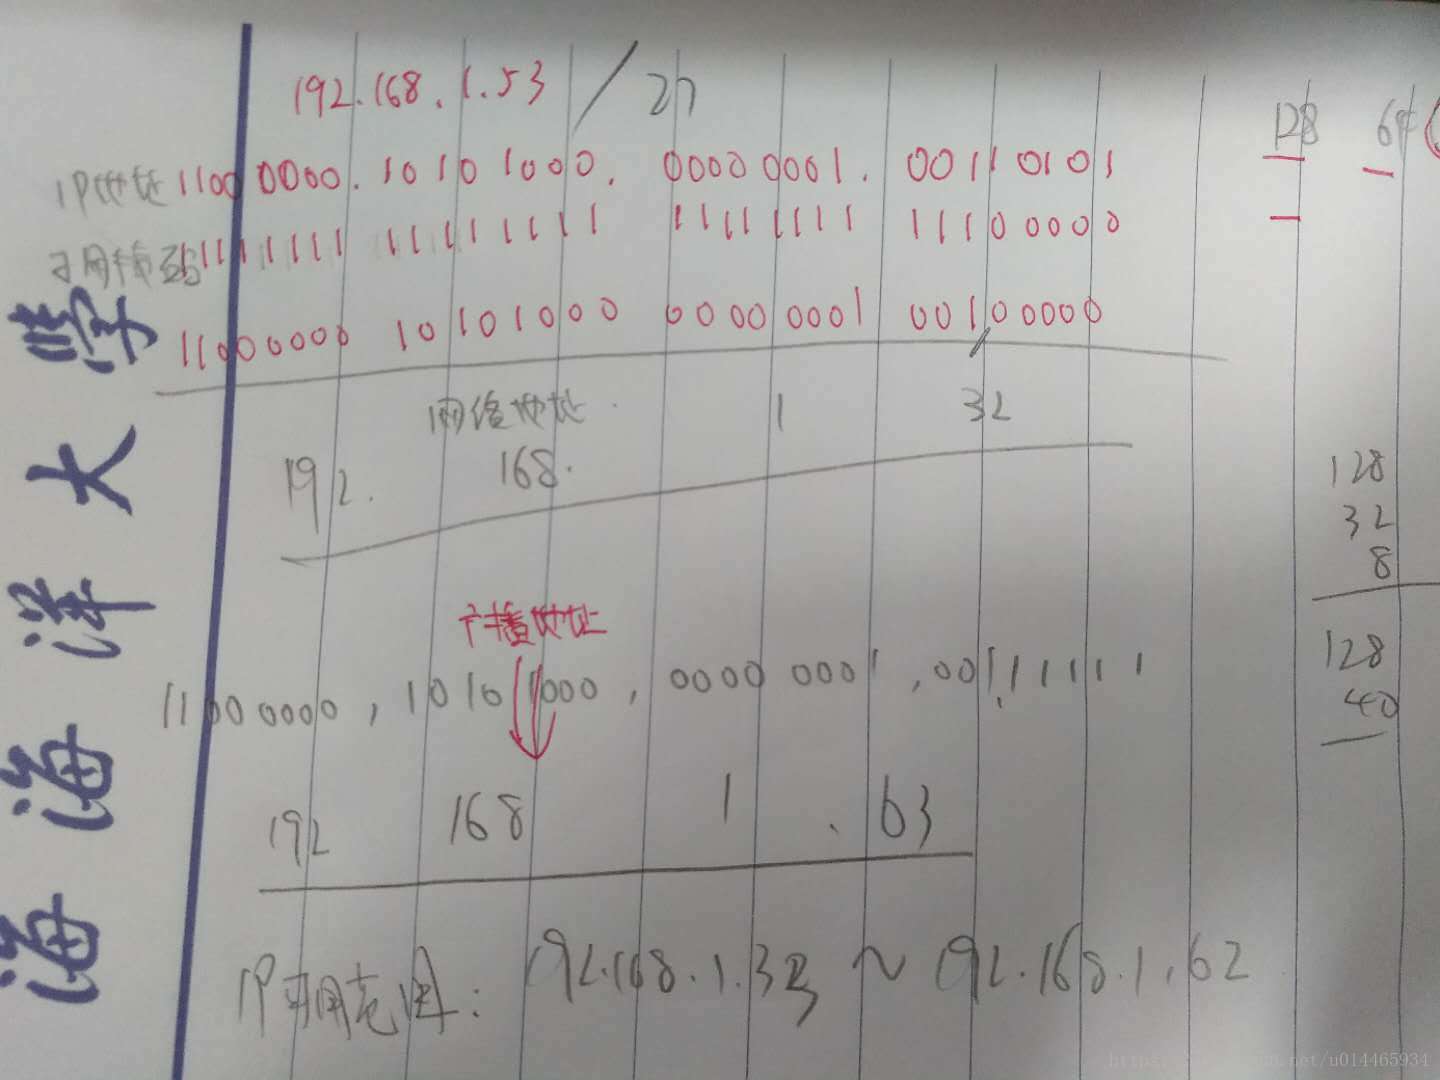 192.168.1.53 / 27
128 64
IP地址 1100 0000. 1010 1000. 0000 0001. 00110101
子网掩码 11111111 11111111 11111111 11100000
11000000 10101000 00000001 00100000
网络地址 1 32
192. 168.
128
32
8
广播地址
128
40
11000000, 10101000, 0000 0001, 00111111
192 168 1 . 63
IP可用范围: 192.168.1.33 ~ 192.168.1.62
上海海洋大学